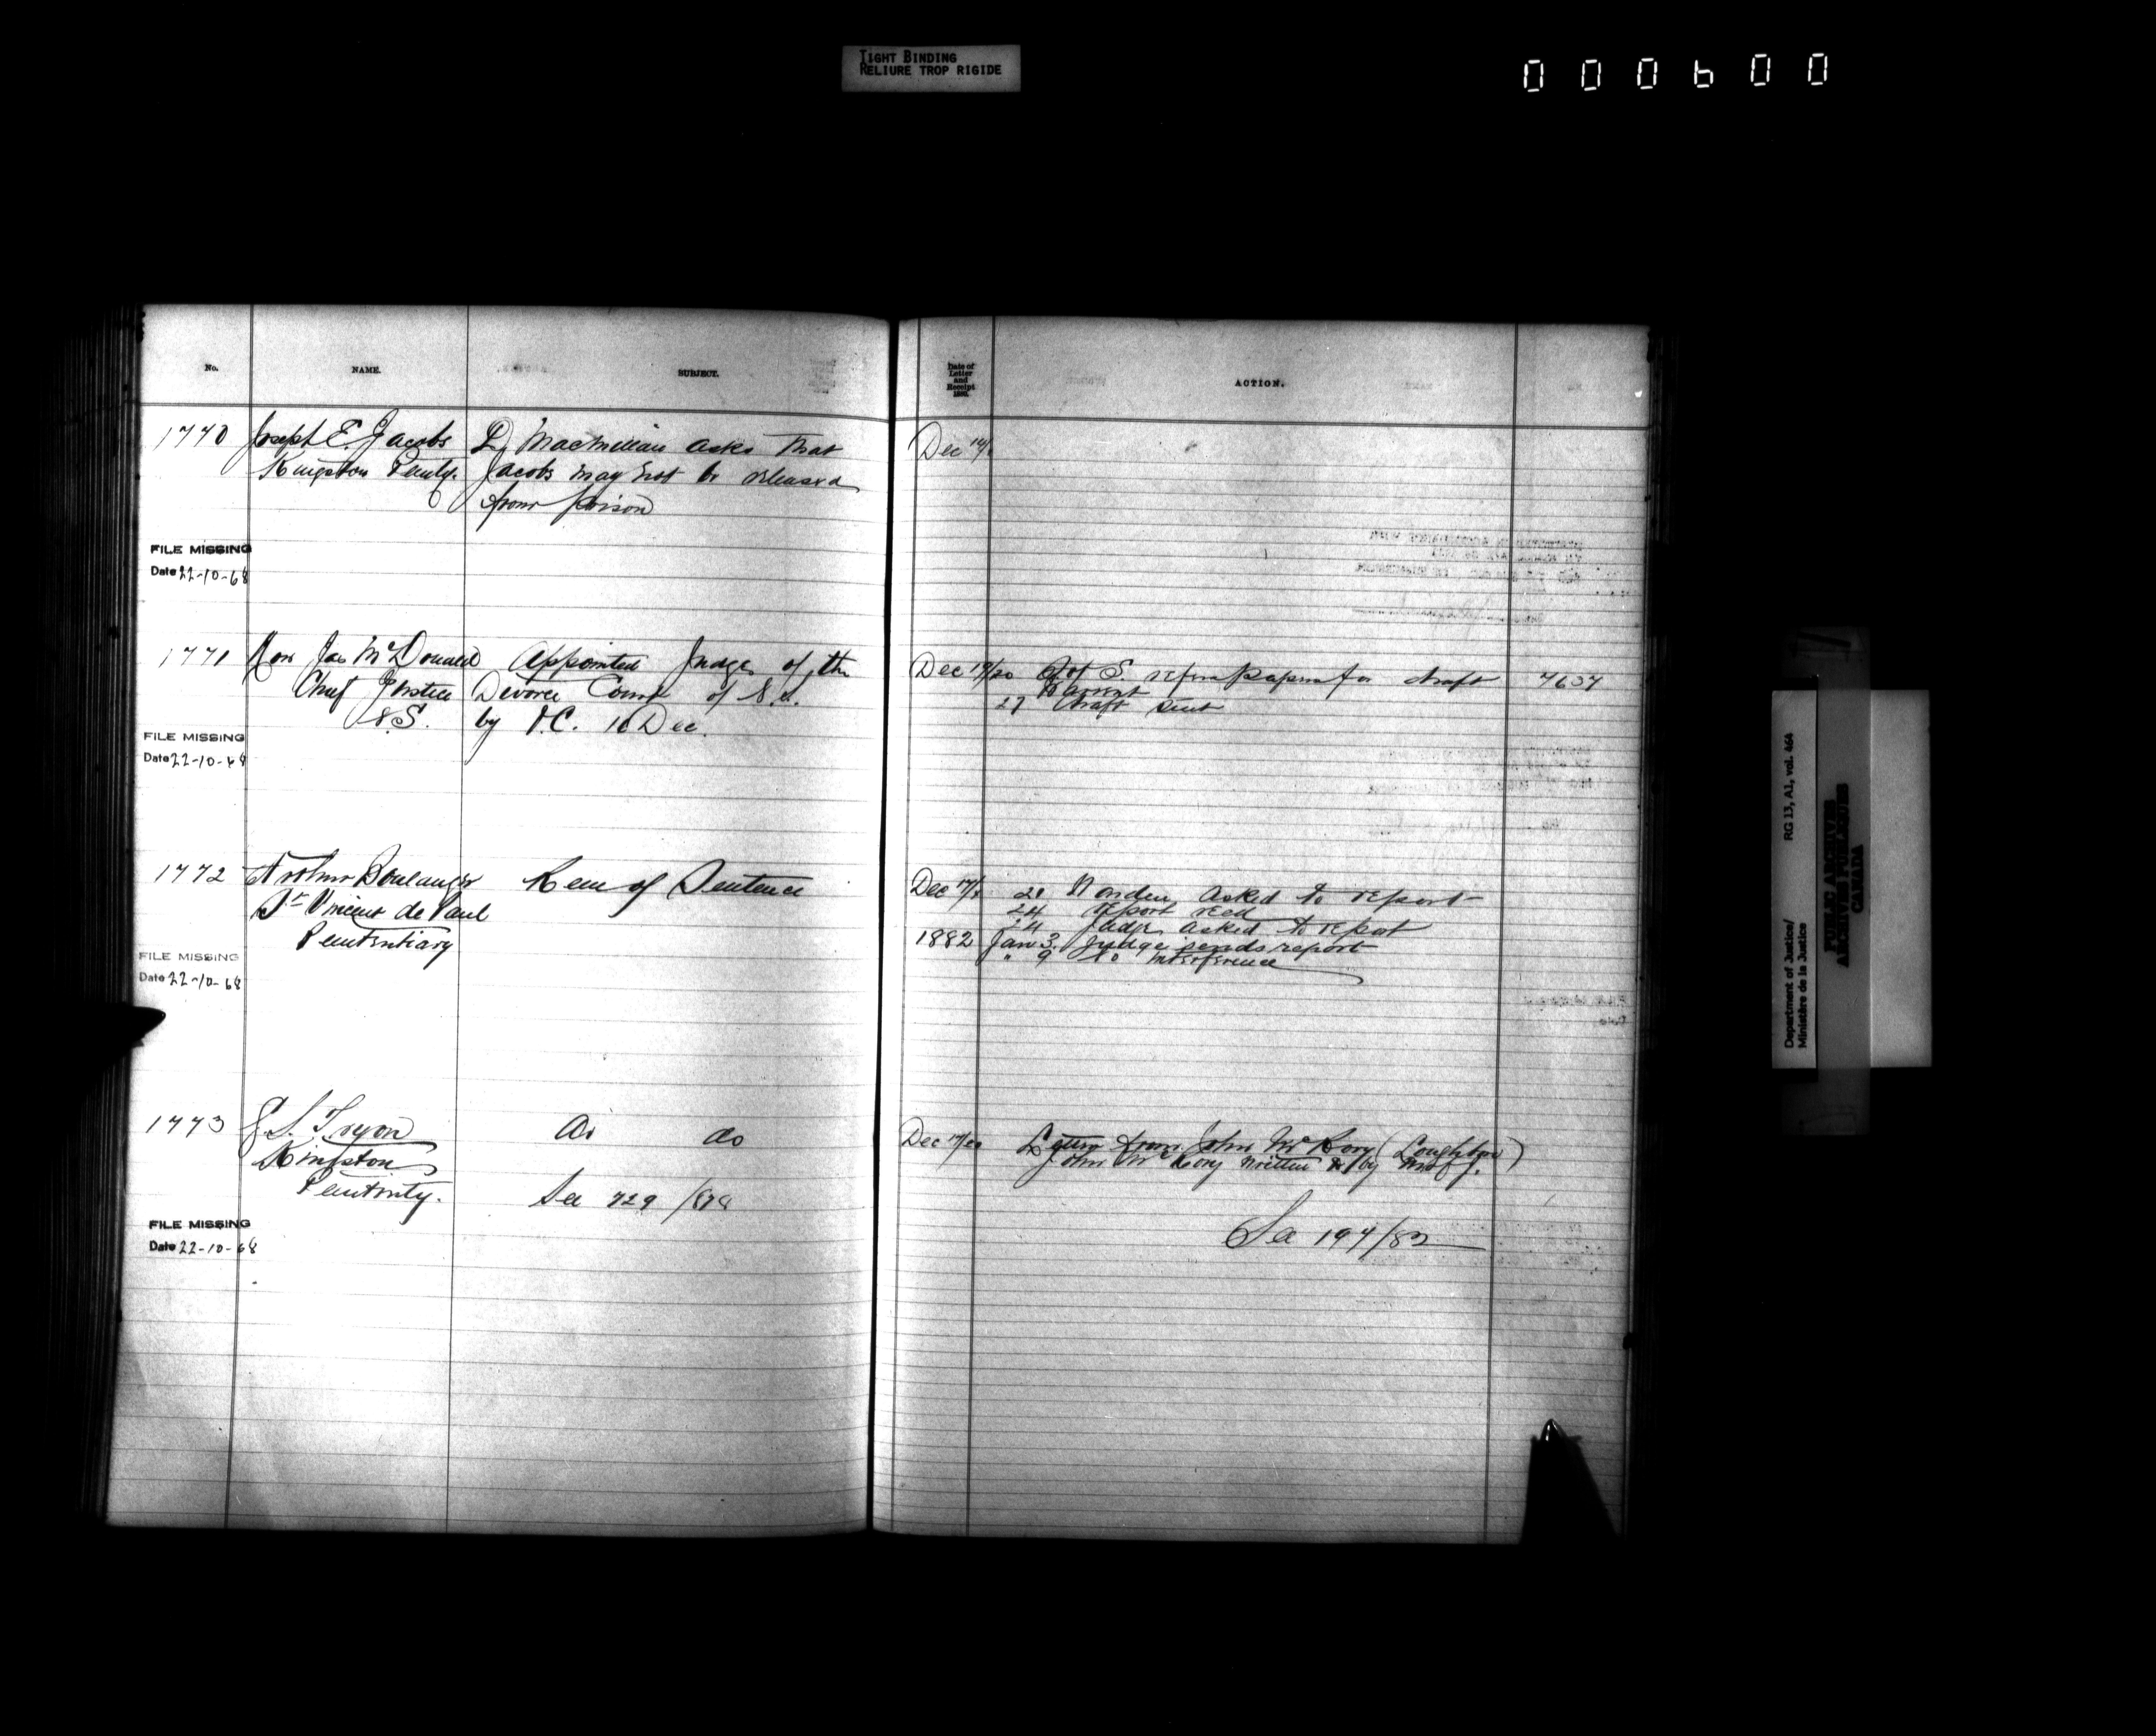 TIGHT BINDING
RELIURE TROP RIGIDE
000600
No.
NAME.
SUBJECT.
Date of
Letter
and
Receipt
ACTION.
1770 Joseph E. Jacobs D MacMillan asks that Dec 14/
Kingston Penty. Jacobs may not be released
from prison
FILE MISSING
Date 22-10-68
1771 Hon Jas McDonald Appointed Judge of the Dec 19/20 S of S. refers papers for draft 7637
Chief Justice Divorce Court of N.S. Warrant
N.S. by O.C. 16 Dec. 27 draft sent
FILE MISSING
Date 22-10-68
1772 Arthur Boulanger Rem of Sentence Dec 17/ 21 Warden asked to report
St Vincent de Paul 24 report recd
24 Judge asked to report
Penitentiary 1882 Jan 3. Judge sends report
" 9 No interference
FILE MISSING
Date 22-10-68
1773 S. Tryon do do Dec 17/20 Letter from John McRory (Loughboro)
Kingston John McRory written to by
Penitenty. See 729/878
See 194/82
FILE MISSING
Date 22-10-68
Department of Justice/ RG 13, A1, vol. 464
Ministère de la Justice
PUBLIC ARCHIVES
ARCHIVES PUBLIQUES
CANADA